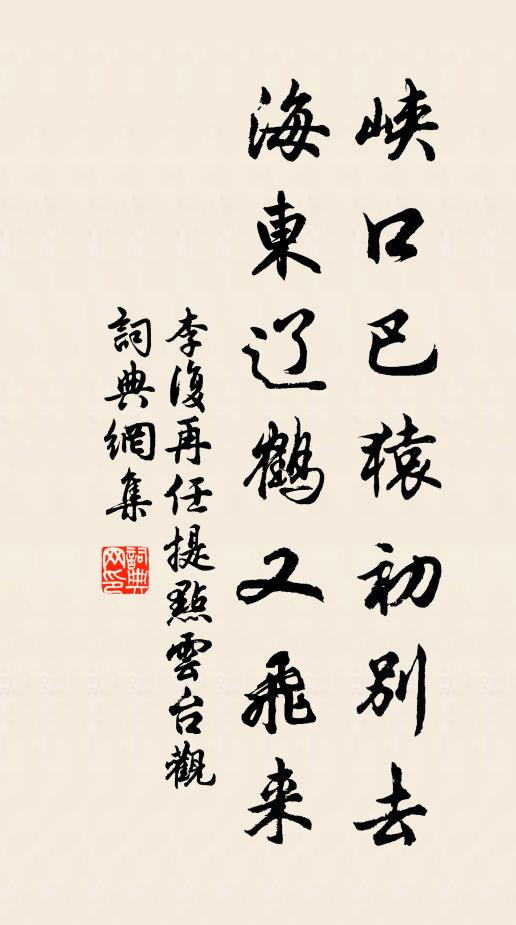 峡口巴猿初别去
海東辽鹤又飛来
李復再任提點雲台觀
詞典網集
詞典网印